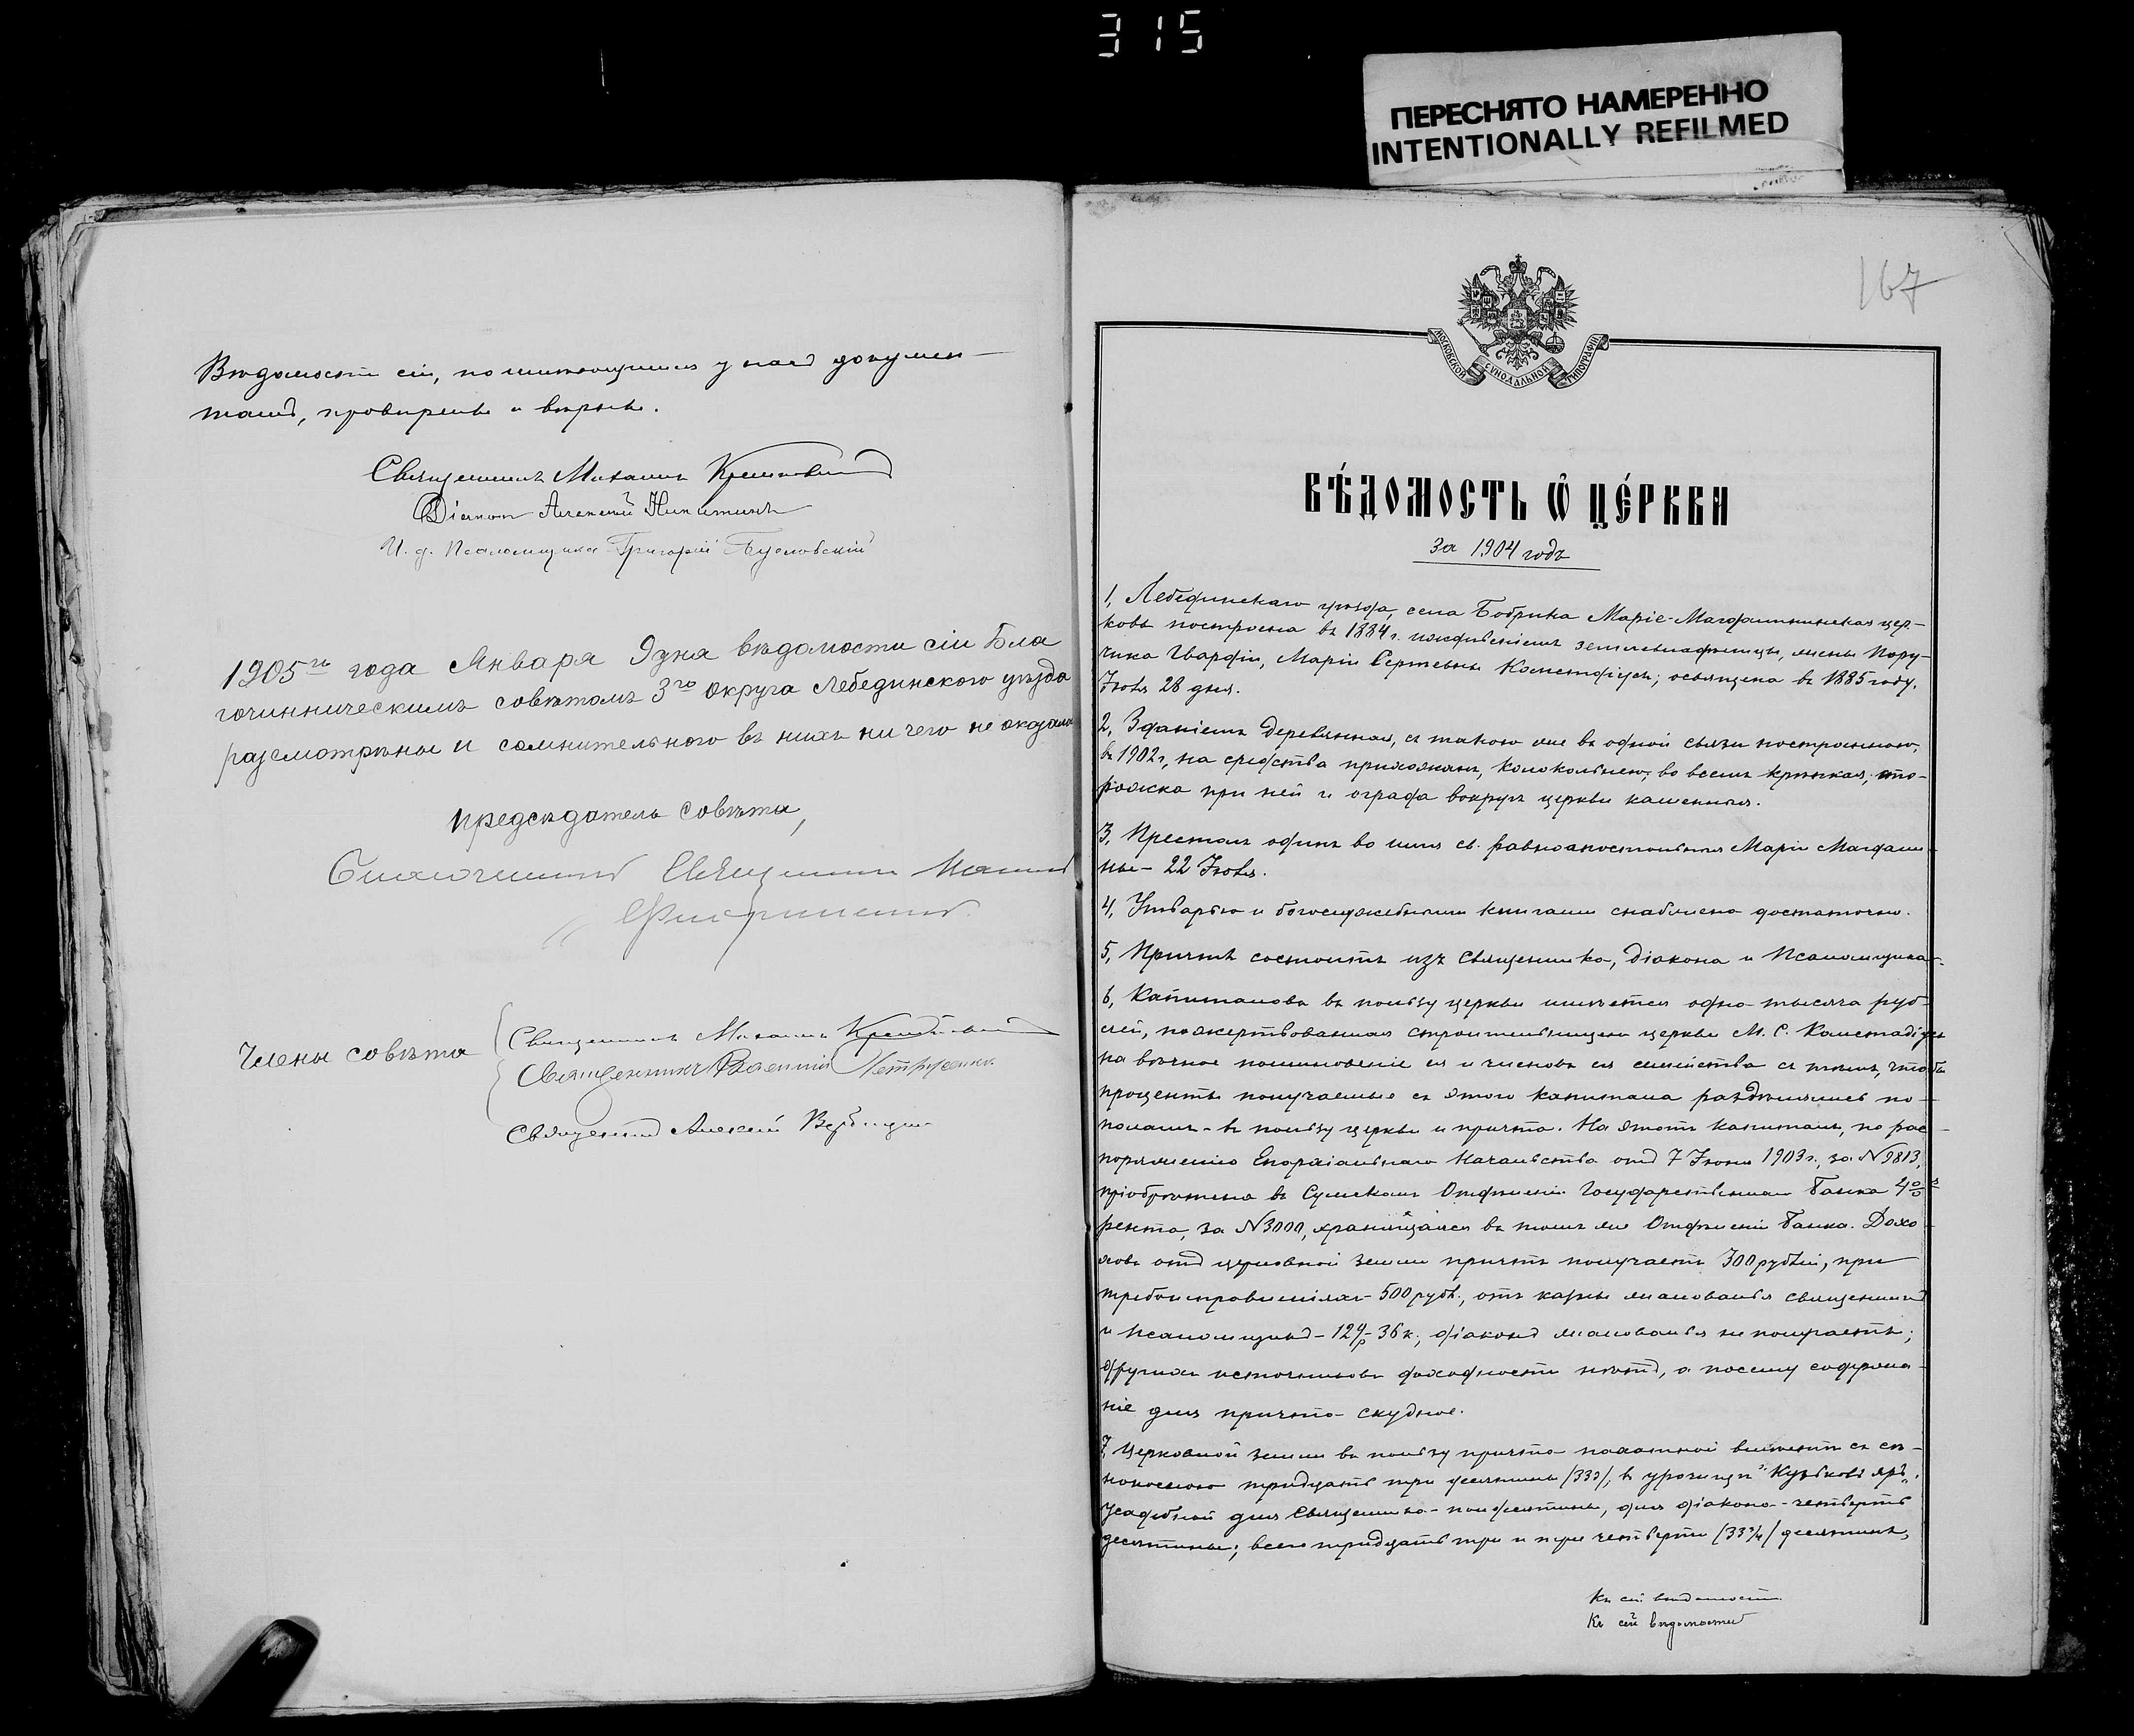 315
ПЕРЕСНЯТО НАМЕРЕННО
INTENTIONALLY REFILMED
Вѣдомости сіи, по имѣющимся у насъ докумен-
тамъ, провѣрены и вѣрны.
Священникъ Михаилъ
Діаконъ Алексѣй Никитинъ
И. д. Псаломщика Григорій Бугловскій
1905го года Января 9 дня вѣдомости сіи Бла
гочинническимъ совѣтомъ 3го округа Лебединского уѣзда
разсмотрѣны и сомнительного въ нихъ ни чего не оказало
предсѣдатель совѣта,
Благочинный Священникъ
Члены совѣта
Священникъ Михаилъ
Священникъ Василій Петрусенко
Священникъ Алексѣй
167
МОСКОВСКОЙ СѴНОДАЛЬНОЙ ТИПОГРАФІИ
ВѢ́ДОМОСТЬ Ѡ҆ ЦЕ́РКВИ
За 1904 годъ
1, Лебединскаго уѣзда, села Бобрика Маріе-Магдалининская цер-
ковь построена въ 1884 г. иждивеніемъ землевладѣлицы, жены Пору-
чика Гвардіи, Маріи Сергѣевны Кометадіусъ; освящена въ 1885 году,
Іюля 28 дня.
2, Зданіемъ деревянная, съ такою же въ одной связи построенною,
въ 1902 г, на средства прихожанъ, колокольнею, во всемъ крѣпкая; сто-
рожка при ней и ограда вокругъ церкви каменныя.
3, Престолъ одинъ во имя св. равноапостольныя Маріи Магдали-
ны - 22 Іюля.
4, Утварью и богослужебными книгами снабжена достаточно.
5, Причтъ состоитъ изъ священника, діакона и Псаломщика.
6, Капиталовъ въ пользу церкви имѣется одна тысяча руб-
лей, пожертвованная строительницею церкви М. С. Кометадіусъ
на вѣчное поминовеніе ея и членовъ ея семейства съ тѣмъ, чтобы
проценты получаемые съ этого капитала раздѣлялись по-
поламъ - въ пользу церкви и причта. На этотъ капиталъ, по рас-
поряженію Епархіальнаго Начальства отъ 7 Іюня 1903 г., за N 9813,
пріобрѣтена въ Сумскомъ Отдѣленіи Государственнаго Банка 4%
рента, за N 3000, хранящаяся въ томъ же Отдѣленіи Банка. Дохо-
довъ отъ церковной земли причтъ получаетъ 300 рублей, при
требоисправленіяхъ - 500 рубл., отъ казны жалованья священникъ
и Псаломщикъ - 124 р 36 к., діаконъ жалованья не получаетъ;
другихъ источниковъ доходности нѣтъ, а посему содержа-
ніе для причта скудное.
7, Церковной земли въ пользу причта пахатной вмѣстѣ съ сѣ-
нокосною тридцать три десятины /33/, въ урочищѣ "Кузьковъ яръ".
Усадебной для Священника - полдесятины, для діакона - четверть
десятины; всего тридцать три и три четверти /33¾/ десятинъ,
Къ сей вѣдомости
Къ сей вѣдомости